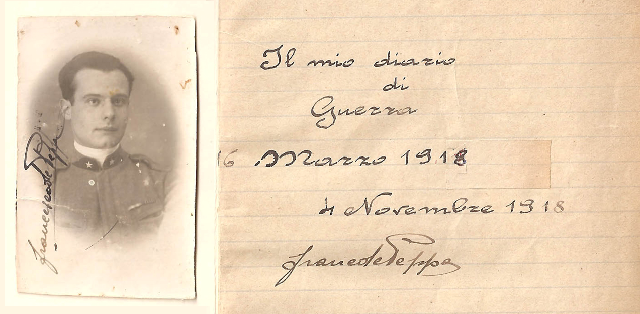 Francesco de Peppo
Il mio diario
di
Guerra
16 Marzo 1918
4 Novembre 1918
Franc de Peppo